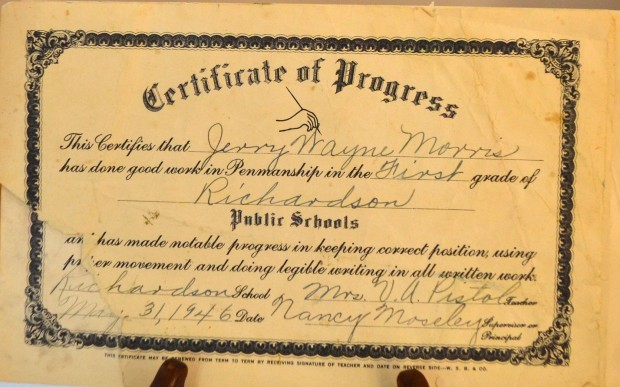 Certificate of Progress
This Certifies that Jerry Wayne Morris
has done good work in Penmanship in the First grade of
Richardson
Public Schools
and has made notable progress in keeping correct position, using
proper movement and doing legible writing in all written work.
Richardson School Mrs. V. A. Pistole Teacher
May, 31, 1946 Date Nancy Moseley Supervisor or Principal
THIS CERTIFICATE MAY BE RENEWED FROM TERM TO TERM BY RECEIVING SIGNATURE OF TEACHER AND DATE ON REVERSE SIDE—W. S. B. & CO.